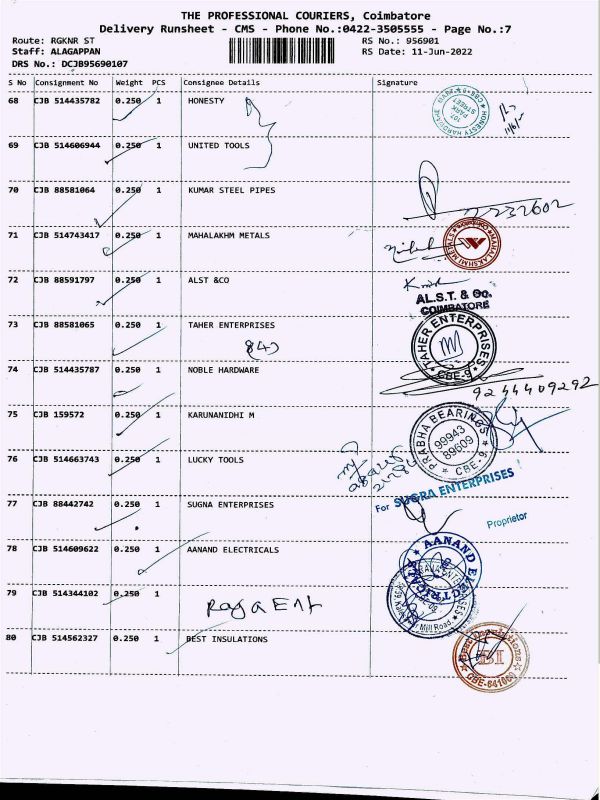 THE PROFESSIONAL COURIERS, Coimbatore
Delivery Runsheet - CMS - Phone No.:0422-3505555 - Page No.:7
Route: RGKNR ST RS No.: 956901
Staff: ALAGAPPAN RS Date: 11-Jun-2022
DRS No.: DCJB95690107
S No Consignment No Weight PCS Consignee Details Signature
68 CJB 514435782 0.250 1 HONESTY
HONESTY HARDWARE MART
107 PARK STREET
CBE-9
69 CJB 514606944 0.250 1 UNITED TOOLS
70 CJB 88581064 0.250 1 KUMAR STEEL PIPES
71 CJB 514743417 0.250 1 MAHALAKHM METALS
MAHALAKSHMI METALS
72 CJB 88591797 0.250 1 ALST &CO
AL.S.T. & Co.
COIMBATORE
73 CJB 88581065 0.250 1 TAHER ENTERPRISES
TAHER ENTERPRISES
CBE-9
74 CJB 514435787 0.250 1 NOBLE HARDWARE
9244409292
75 CJB 159572 0.250 1 KARUNANIDHI M
PRABHA BEARINGS
99943
89609
CBE-9
76 CJB 514663743 0.250 1 LUCKY TOOLS
77 CJB 88442742 0.250 1 SUGNA ENTERPRISES
For SUGRA ENTERPRISES
Proprietor
78 CJB 514609622 0.250 1 AANAND ELECTRICALS
AANAND ELECTRICALS
79 CJB 514344102 0.250 1 Raga Ent
Mill Road
80 CJB 514562327 0.250 1 BEST INSULATIONS
Best Insulations
BI
CBE-641009